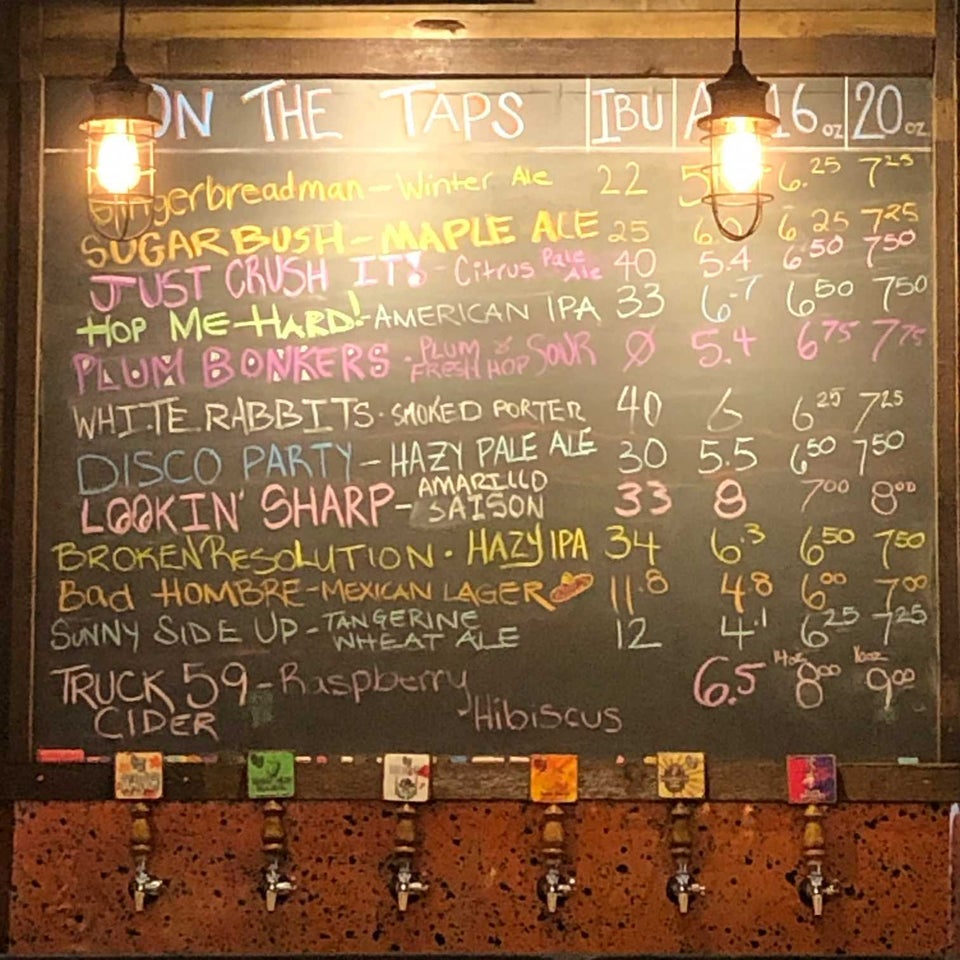 ON THE TAPS IBU A 16 oz 20 oz
Gingerbreadman - Winter Ale 22 5 6.25 7 25
SUGARBUSH - MAPLE ALE 25 6.0 6 25 7 25
JUST CRUSH IT! - Citrus Pale Ale 40 5.4 6 50 7 50
HOP ME HARD! - AMERICAN IPA 33 6.7 6 50 7 50
PLUM BONKERS - PLUM & FRESH HOP SOUR Ø 5.4 6 75 7 75
WHITE RABBITS - SMOKED PORTER 40 6 6 25 7 25
DISCO PARTY - HAZY PALE ALE 30 5.5 6 50 7 50
LOOKIN' SHARP - AMARILLO SAISON 33 8 7 00 8 00
BROKEN RESOLUTION - HAZY IPA 34 6.3 6 50 7 50
Bad HOMBRE - MEXICAN LAGER 11.8 4.8 6 00 7 00
SUNNY SIDE UP - TANGERINE WHEAT ALE 12 4.1 6 25 7 25
TRUCK 59 - Raspberry 6.5 14oz 8 00 16oz 9 00
CIDER Hibiscus